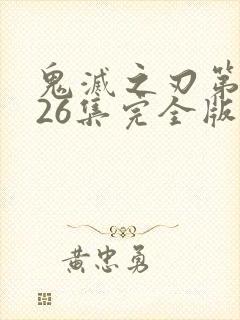 鬼滅之刃第
26集完全版
黃忠勇